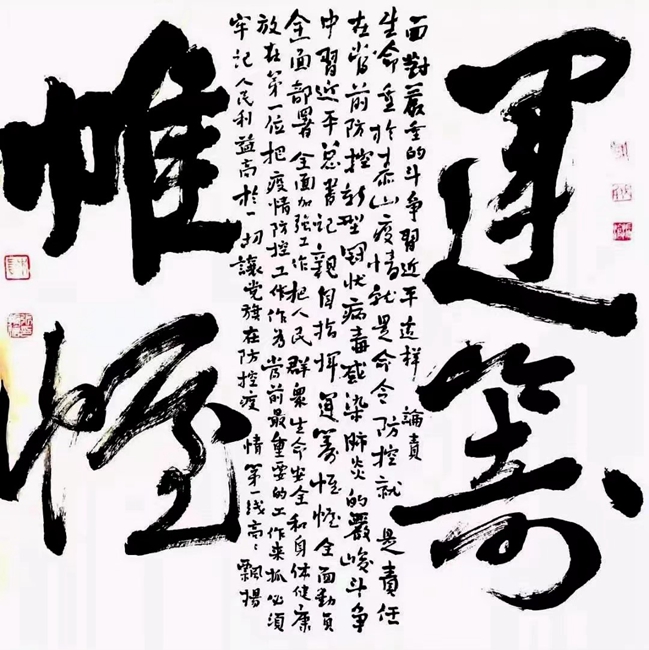 運籌
面對嚴重的斗争習近平这样論責
生命重於泰山疫情就是命令防控就是責任
在当前防控新型冠状病毒感染肺炎的嚴峻斗争
中習近平总書记親自指揮運籌帷幄全面動員
全面部署全面加強工作把人民群衆生命安全和身体健康
放在第一位把疫情防控工作作为当前最重要的工作来抓必須
牢记人民利益高於一切讓党旗在防控疫情第一线高〻飘揚
帷幄